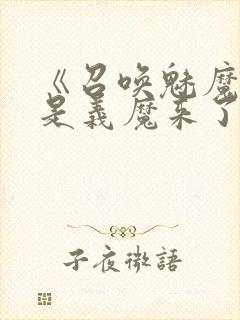 《召唤魅魔
是義魔来了
子夜微語